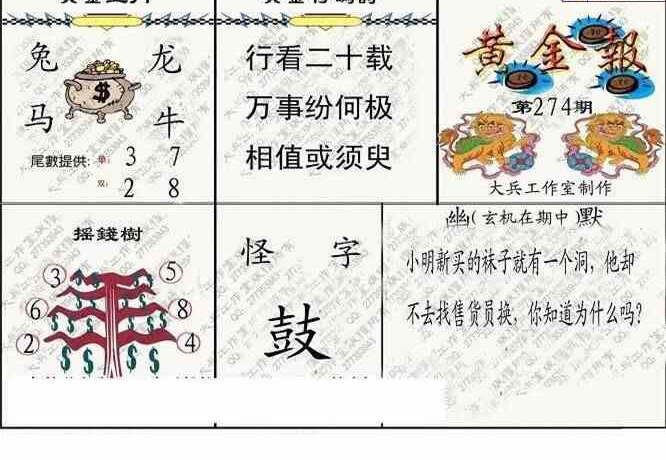 兔 龙
马 牛
$
尾數提供: 单: 3 7
双: 2 8
行看二十载
万事纷何极
相值或须臾
黄金報
第274期
大兵工作室制作
摇錢樹
3 5
6 8
2 4
怪字
鼓
幽(玄机在期中)默
小明新买的袜子就有一个洞，他却
不去找售货员换，你知道为什么吗?